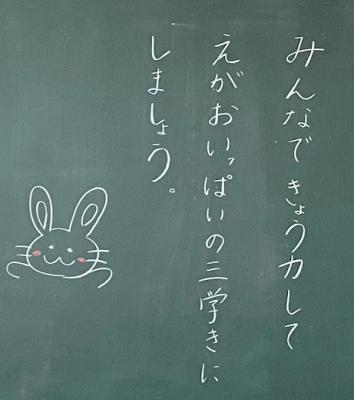 みんなできょう力して
えがおいっぱいの三学きに
しましょう。